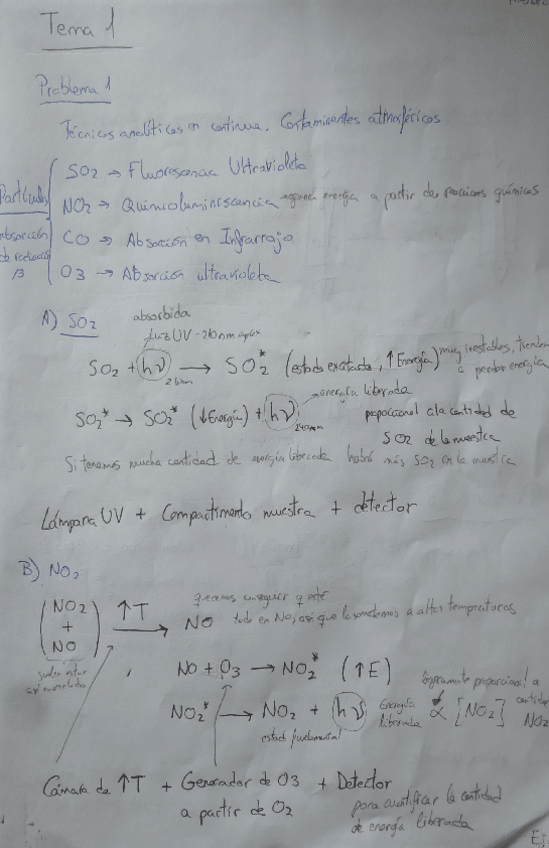 Tema 1
Problema 1
Técnicas analíticas en continua. Contaminantes atmosféricos
SO2 → Fluorescencia Ultravioleta
NO2 → Quimioluminiscencia → energía a partir de reacciones químicas
CO → Absorción en Infrarrojo
O3 → Absorción ultravioleta
Partículas
absorción
de radiación
β
A) SO2
absorbida
luz UV ~ 210nm aprox
SO2 + hν → SO2* (estado excitado, ↑Energía) muy inestables, tienden
a perder energía
SO2* → SO2* (↓Energía) + hν → energía liberada
proporcional a la cantidad de
SO2 de la muestra
Si tenemos mucha cantidad de energía liberada habrá más SO2 en la muestra
Lámpara UV + Compartimento muestra + detector
B) NO2
(NO2 + NO) ↑T → NO
queremos conseguir que esté
todo en NO, así que lo sometemos a altas temperaturas
suelen estar
NO + O3 → NO2* (↑E)
NO2* → NO2 + hν Energía liberada ∝ [NO2]
proporcional a
cantidad
NO2
estado fundamental
Cámara de ↑T + Generador de O3 + Detector
a partir de O2
para cuantificar la cantidad
de energía liberada